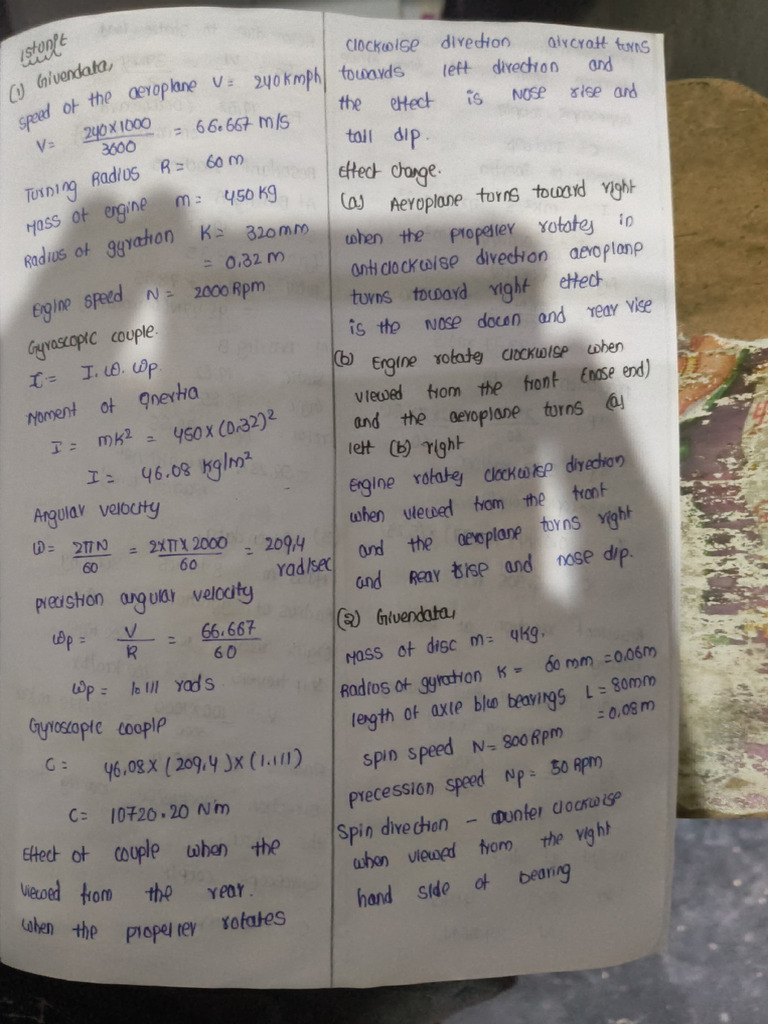 1st unit
(1) Givendata,
speed of the aeroplane V = 240 kmph
V = 240x1000 / 3600 = 66.667 m/s
Turning Radius R = 60 m
Mass of engine m = 450 kg
Radius of gyration K = 320 mm
= 0.32 m
Engine speed N = 2000 Rpm
Gyroscopic couple.
C = I. ω. ωp.
Moment of inertia
I = mk² = 450 x (0.32)²
I = 46.08 kg/m²
Angular velocity
ω = 2πN / 60 = 2xπx2000 / 60 = 209.4 rad/sec
precistion angular velocity
ωp = V / R = 66.667 / 60
ωp = 1.111 rads
Gyroscopic couple
C = 46.08 x (209.4) x (1.111)
C = 10720.20 N·m
Effect of couple when the
viewed from the rear.
when the propeller rotates
clockwise direction aircraft turns
towards left direction and
the effect is nose rise and
tail dip.
Effect change.
(a) Aeroplane turns toward right
when the propeller rotates in
anticlockwise direction aeroplane
turns toward right effect
is the nose down and rear rise
(b) Engine rotates clockwise when
viewed from the front (nose end)
and the aeroplane turns (a)
left (b) right
Engine rotates clockwise direction
when viewed from the front
and the aeroplane turns right
and Rear rise and nose dip.
(2) Givendata,
Mass of disc m = 4kg.
Radius of gyration K = 60 mm = 0.06m
length of axle b/w bearings L = 80mm
= 0.08m
spin speed N = 800 Rpm
precession speed Np = 50 Rpm
Spin direction - counter clockwise
when viewed from the right
hand side of bearing